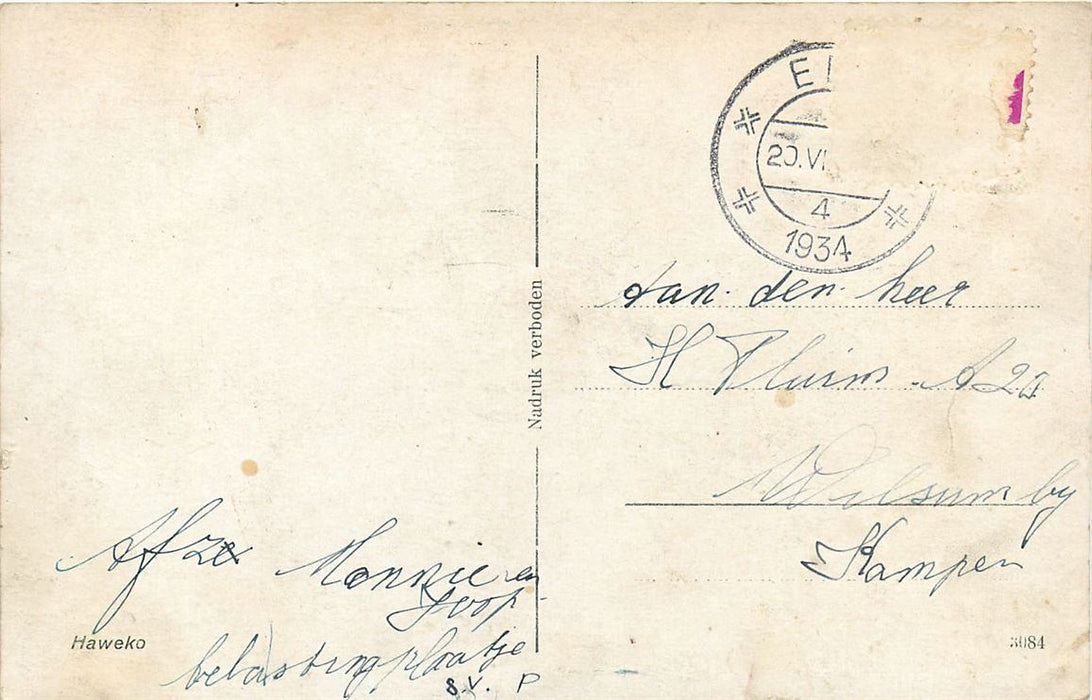 EI
20.VI.
4
1934
Nadruk verboden
Aan den heer
H Pluims. A 20
Wilsum by
Kampen
Afze Mannie en
Joop.
belastingplaatje
s.v. P
Haweko
3084